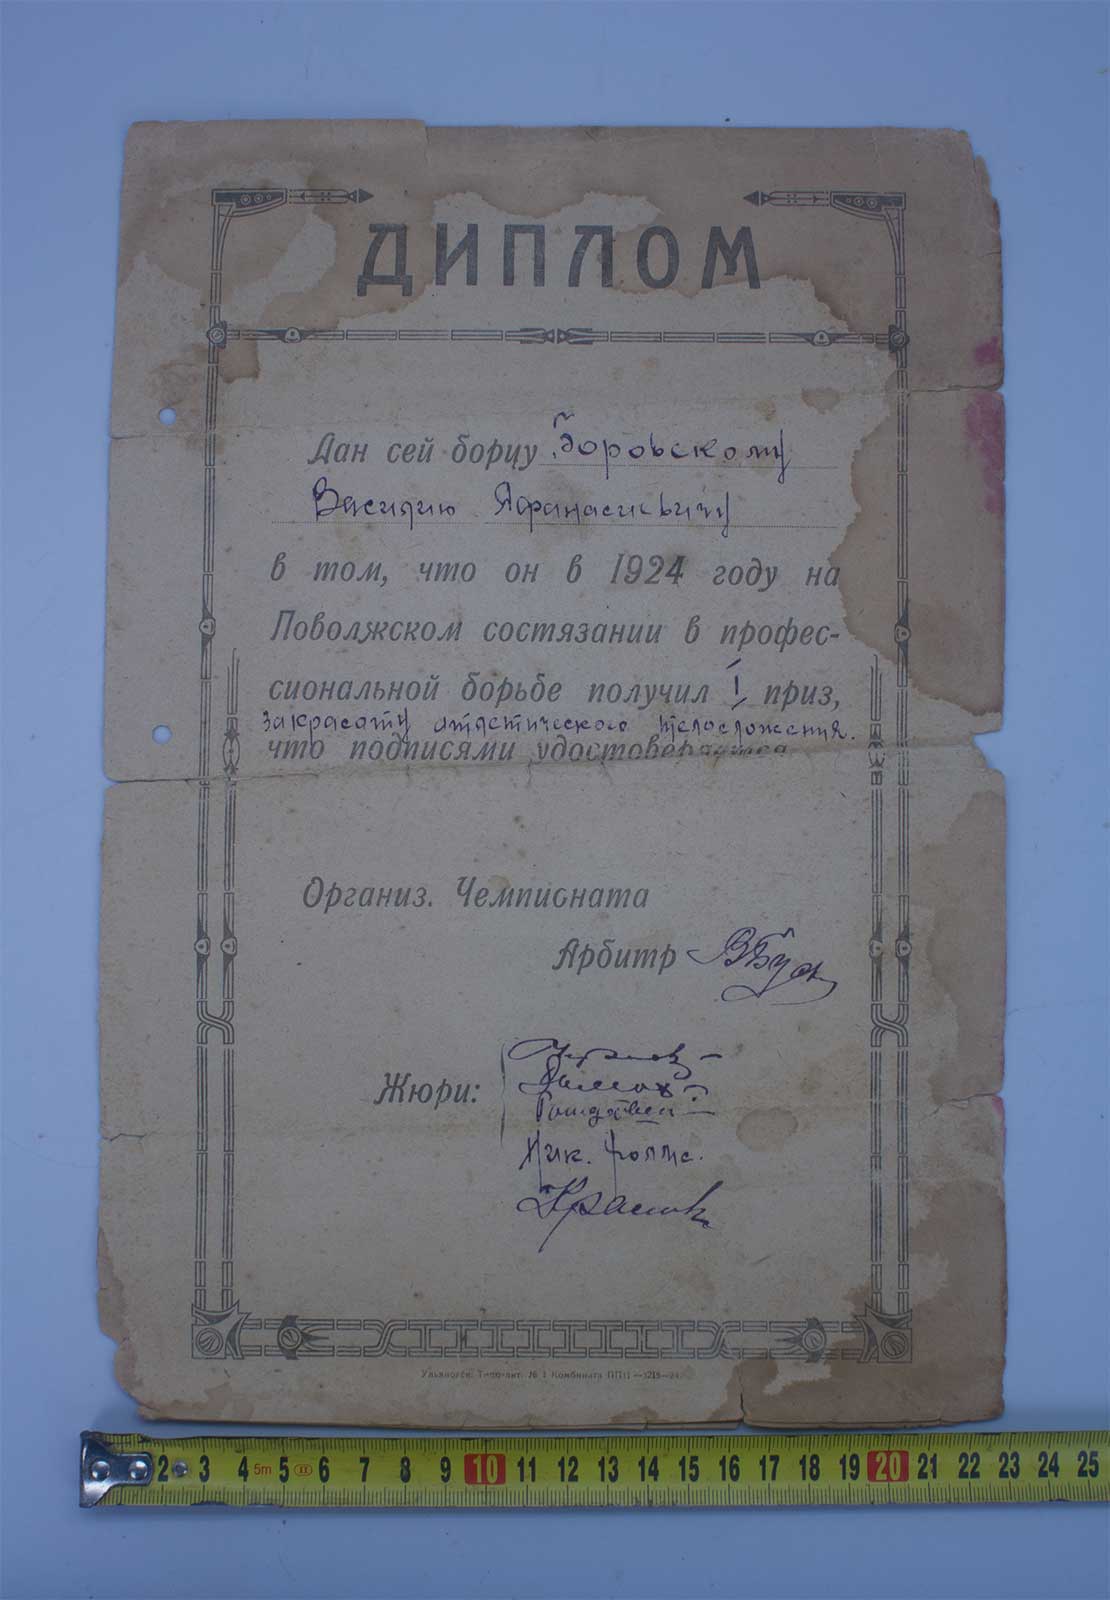 ДИПЛОМ
Дан сей борцу Боровскому
Василию Афанасиевичу
в том, что он в 1924 году на
Поволжском состязании в профес-
сиональной борьбе получил I приз,
за красоту атлетического телосложения.
что подписями удостоверяется
Организ. Чемпионата
Арбитр
Жюри:
Ник.
Ульяновск. Типо-лит. № 1 Комбината ППП
2 3 4 5m 5 II 6 7 8 9 10 11 12 13 14 15 16 17 18 19 20 21 22 23 24 25